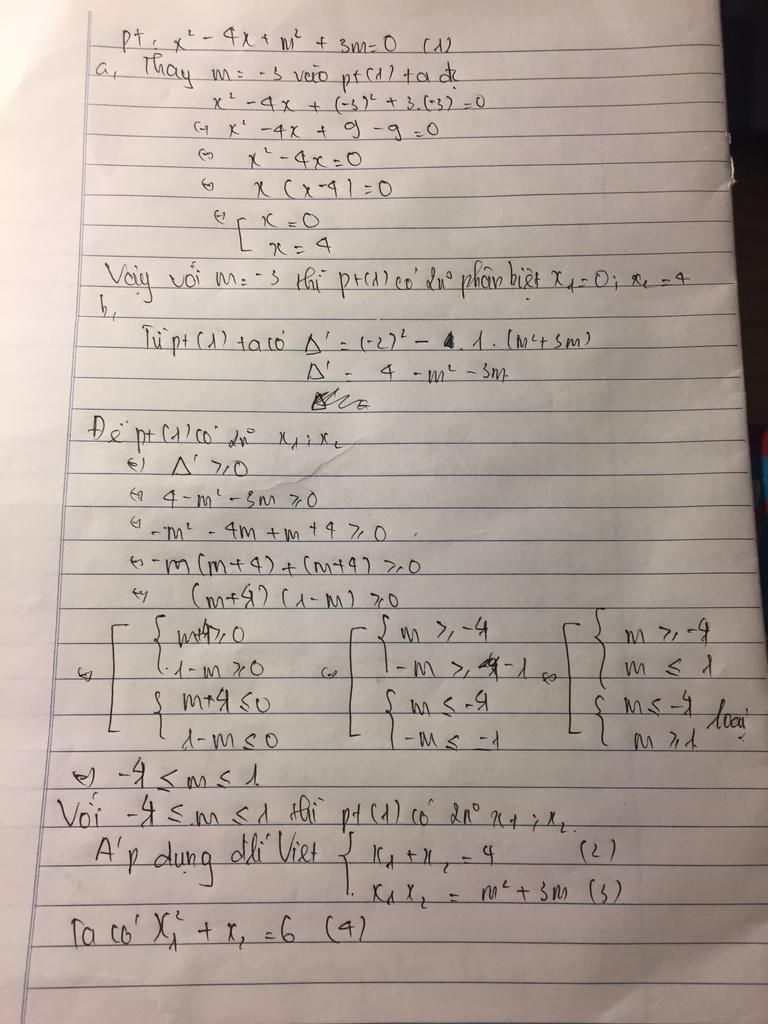 pt: x² - 4x + m² + 3m = 0 (1)
a, Thay m = -3 vào pt(1) ta đc
x² - 4x + (-3)² + 3.(-3) = 0
⇔ x² - 4x + 9 - 9 = 0
⇔ x² - 4x = 0
⇔ x (x - 4) = 0
⇔ [ x = 0
x = 4
Vậy với m = -3 thì pt(1) có 2n⁰ phân biệt x₁ = 0; x₂ = 4
b,
Từ pt(1) ta có Δ' = (-2)² - 1. (m² + 3m)
Δ' = 4 - m² - 3m
Để pt(1) có 2n⁰ x₁; x₂
⇔ Δ' ≥ 0
⇔ 4 - m² - 3m ≥ 0
⇔ -m² - 4m + m + 4 ≥ 0
⇔ -m (m + 4) + (m + 4) ≥ 0
⇔ (m + 4) (1 - m) ≥ 0
⇔ [ { m + 4 ≥ 0 ⇔ [ { m ≥ -4 ⇔ [ { m ≥ -4
1 - m ≥ 0 -m ≥ -1 m ≤ 1
{ m + 4 ≤ 0 { m ≤ -4 { m ≤ -4 loại
1 - m ≤ 0 -m ≤ -1 m ≥ 1
⇔ -4 ≤ m ≤ 1
Với -4 ≤ m ≤ 1 thì pt(1) có 2n⁰ x₁; x₂
Áp dụng đlí Viet { x₁ + x₂ = 4 (2)
x₁ x₂ = m² + 3m (3)
Ta có x₁² + x₂ = 6 (4)